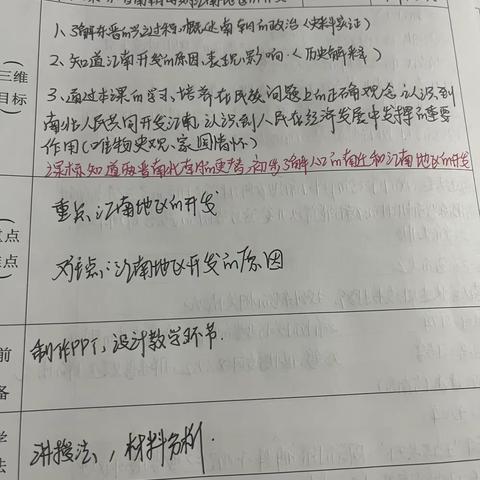 1、了解东晋的兴亡过程,概述南朝的政治(史料实证)
三维
目标
2、知道江南开发的原因、表现、影响.(历史解释)
3、通过本课的学习,培养在民族问题上的正确观念,认识到
南北人民共同开发江南,认识到人民在经济发展中发挥的重要
作用(唯物史观、家国情怀)
课标:知道两晋南北朝的更替,初步了解人口的南迁和江南地区的开发
点
点
重点:江南地区的开发
难点:江南地区开发的原因
前
备
制作PPT,设计教学环节.
学
法
讲授法,材料分析.